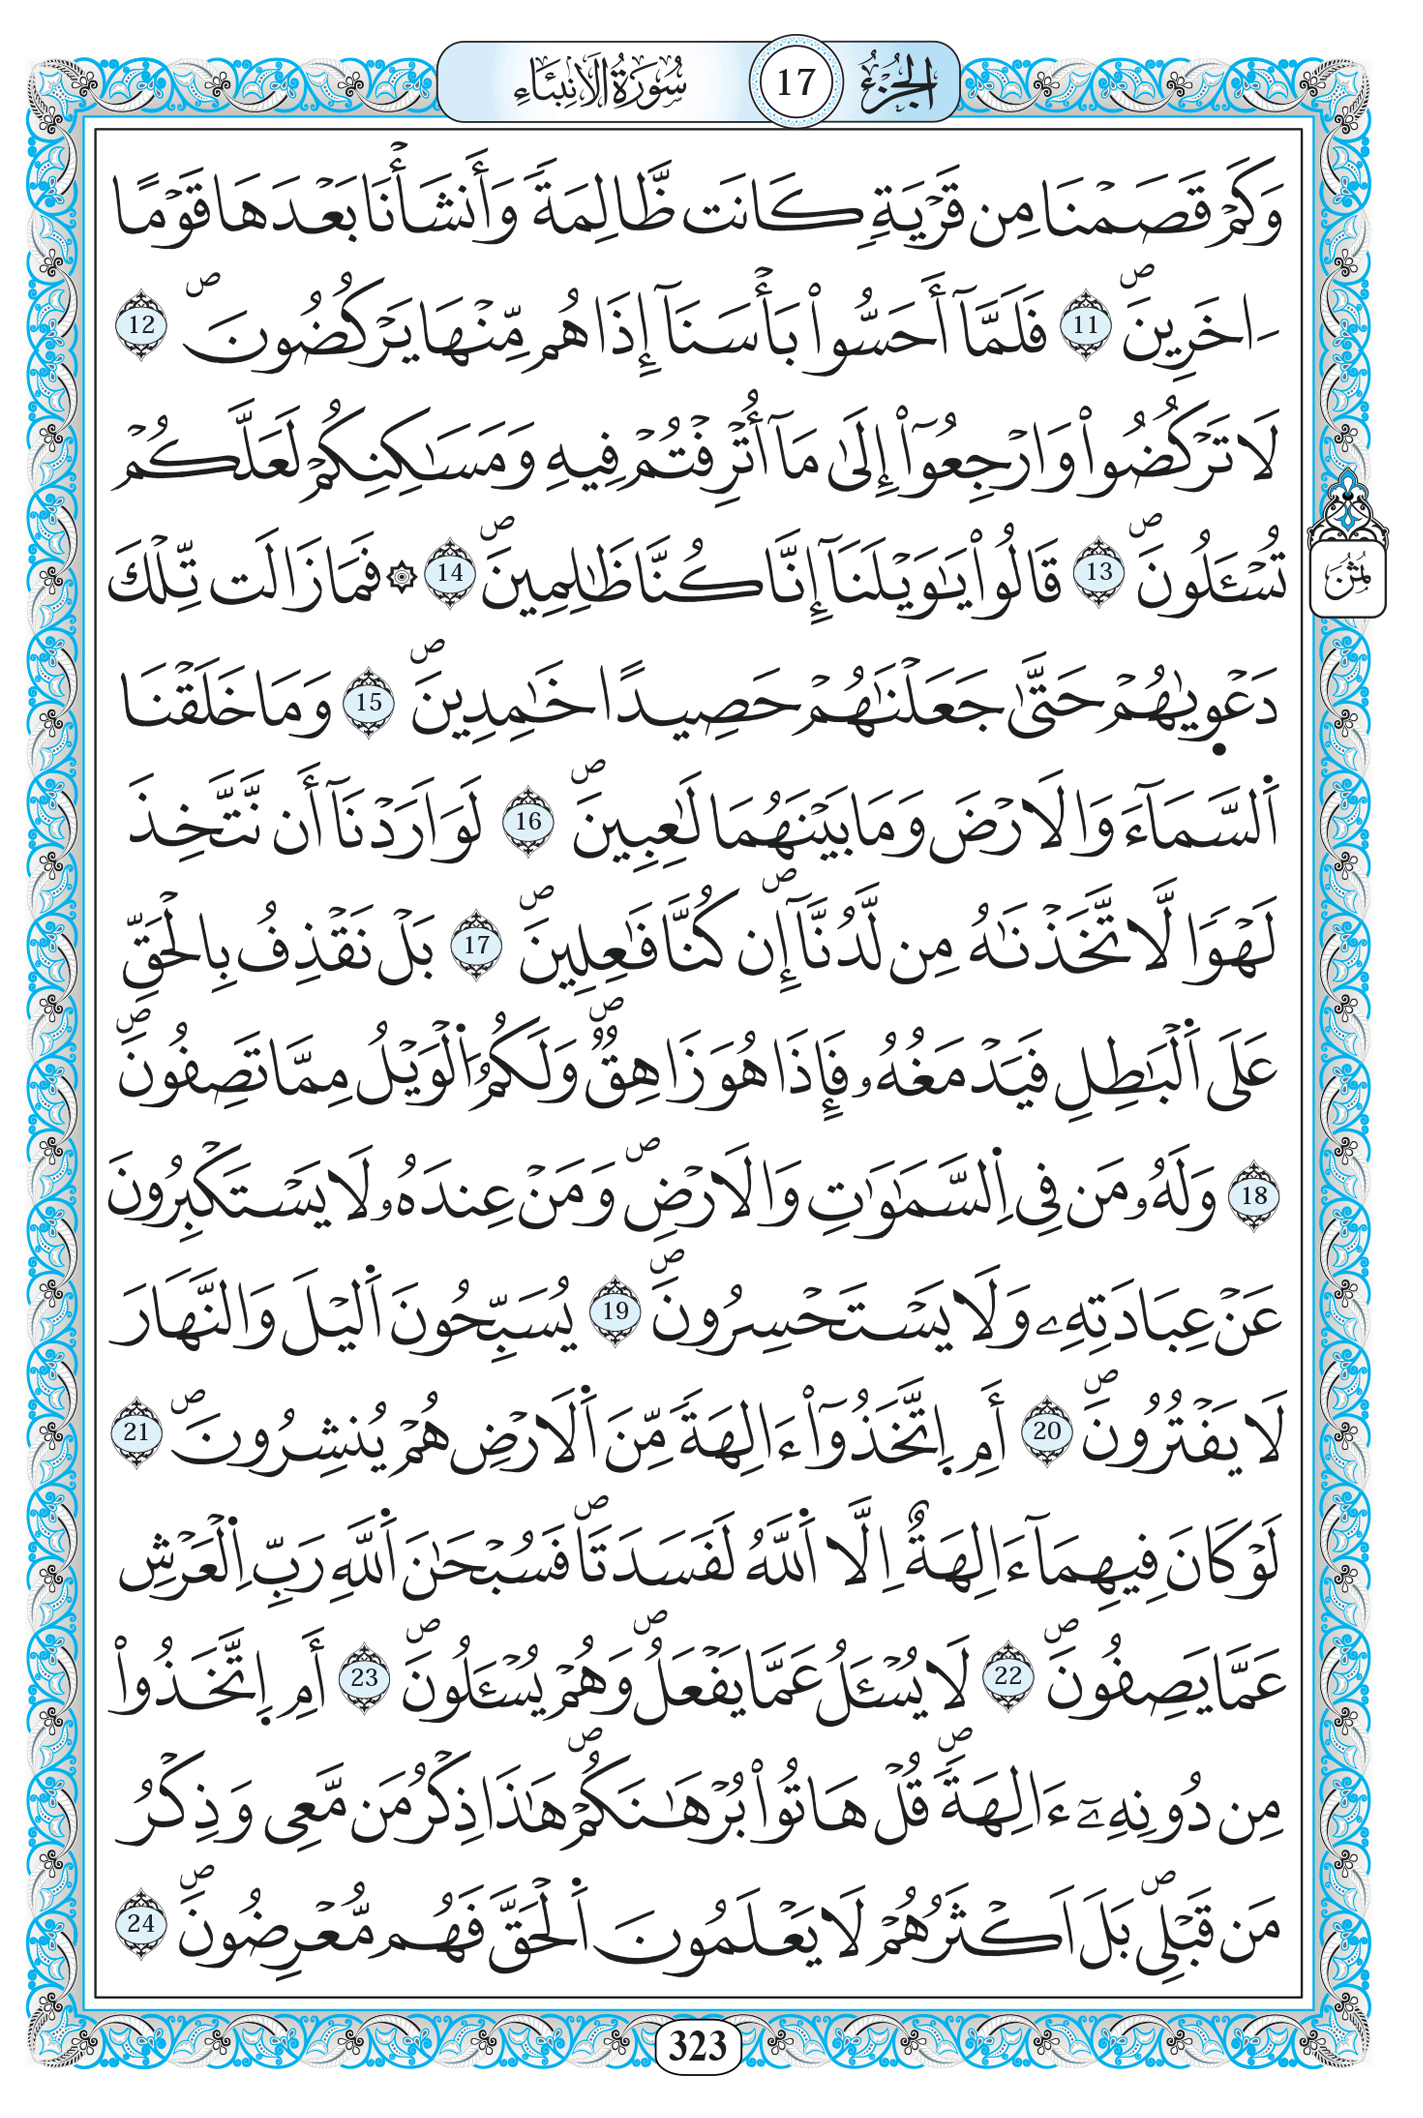 الجزء 17 سورة الأنبياء
وَكَمْ قَصَمْنَا مِن قَرْيَةٖ كَانَت ظَّالِمَةٗ وَأَنشَأْنَا بَعْدَهَا قَوْماً
ـاخَرِينَۖ 11 فَلَمَّآ أَحَسُّواْ بَأْسَنَآ إِذَا هُم مِّنْهَا يَرْكُضُونَۖ 12
لَا تَرْكُضُواْ وَارْجِعُوٓاْ إِلَىٰ مَآ أُتْرِفْتُمْ فِيهِ وَمَسَٰكِنِكُمْ لَعَلَّكُمْ
تُسْـَٔلُونَۖ 13 قَالُواْ يَٰوَيْلَنَآ إِنَّا كُنَّا ظَٰلِمِينَۖ 14 ۞ فَمَا زَالَت تِّلْكَ
ثمن
دَعْويٰهُمْ حَتَّىٰ جَعَلْنَٰهُمْ حَصِيداً خَٰمِدِينَۖ 15 وَمَا خَلَقْنَا
اَ۬لسَّمَآءَ وَالَارْضَ وَمَا بَيْنَهُمَا لَٰعِبِينَۖ 16 لَوَ اَرَدْنَآ أَن نَّتَّخِذَ
لَهْواٗ لَّاتَّخَذْنَٰهُ مِن لَّدُنَّآۖ إِن كُنَّا فَٰعِلِينَۖ 17 بَلْ نَقْذِفُ بِالْحَقِّ
عَلَى اَ۬لْبَٰطِلِ فَيَدْمَغُهُۥ فَإِذَا هُوَ زَاهِقٞۖ وَلَكُمُ اُ۬لْوَيْلُ مِمَّا تَصِفُونَۖ
18 وَلَهُۥ مَن فِي اِ۬لسَّمَٰوَٰتِ وَالَارْضِۖ وَمَنْ عِندَهُۥ لَا يَسْتَكْبِرُونَ
عَنْ عِبَادَتِهِۦ وَلَا يَسْتَحْسِرُونَۖ 19 يُسَبِّحُونَ اَ۬ليْلَ وَالنَّهَارَ
لَا يَفْتُرُونَۖ 20 أَمِ اِ۪تَّخَذُوٓاْ ءَالِهَةٗ مِّنَ اَ۬لَارْضِ هُمْ يُنشِرُونَۖ 21
لَوْ كَانَ فِيهِمَآ ءَالِهَةٌ اِلَّا اَ۬للَّهُ لَفَسَدَتَاۖ فَسُبْحَٰنَ اَ۬للَّهِ رَبِّ اِ۬لْعَرْشِ
عَمَّا يَصِفُونَۖ 22 لَا يُسْـَٔلُ عَمَّا يَفْعَلُۖ وَهُمْ يُسْـَٔلُونَۖ 23 أَمِ اِ۪تَّخَذُواْ
مِن دُونِهِۦٓ ءَالِهَةٗۖ قُلْ هَاتُواْ بُرْهَٰنَكُمْۖ هَٰذَا ذِكْرُ مَن مَّعِي وَذِكْرُ
مَن قَبْلِيۖ بَلَ اَكْثَرُهُمْ لَا يَعْلَمُونَ اَ۬لْحَقَّ فَهُم مُّعْرِضُونَۖ 24
323